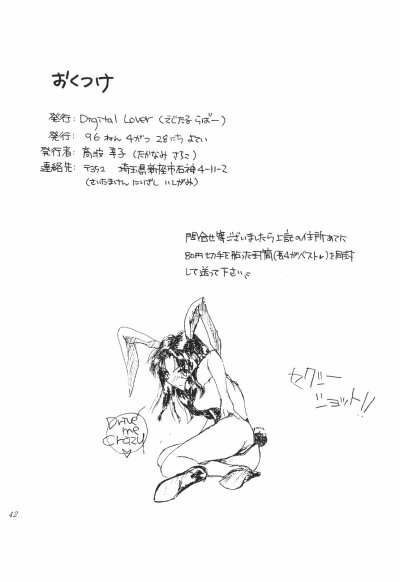 おくつけ
発行: Digital Lover (でじたる らばー)
発行: 96 ねん 4がつ 28にち よてい
発行者: 高波 幸子 (たかなみ さちこ)
連絡先: 〒352 埼玉県新座市石神4-11-2
(さいたまけん にいざし いしがみ)
問合せ等ございましたら上記の住所あてに
80円切手を貼った封筒(長4がベスト)を同封
して送って下さい
セクシー
ショット!!
Drive
me
Crazy
42